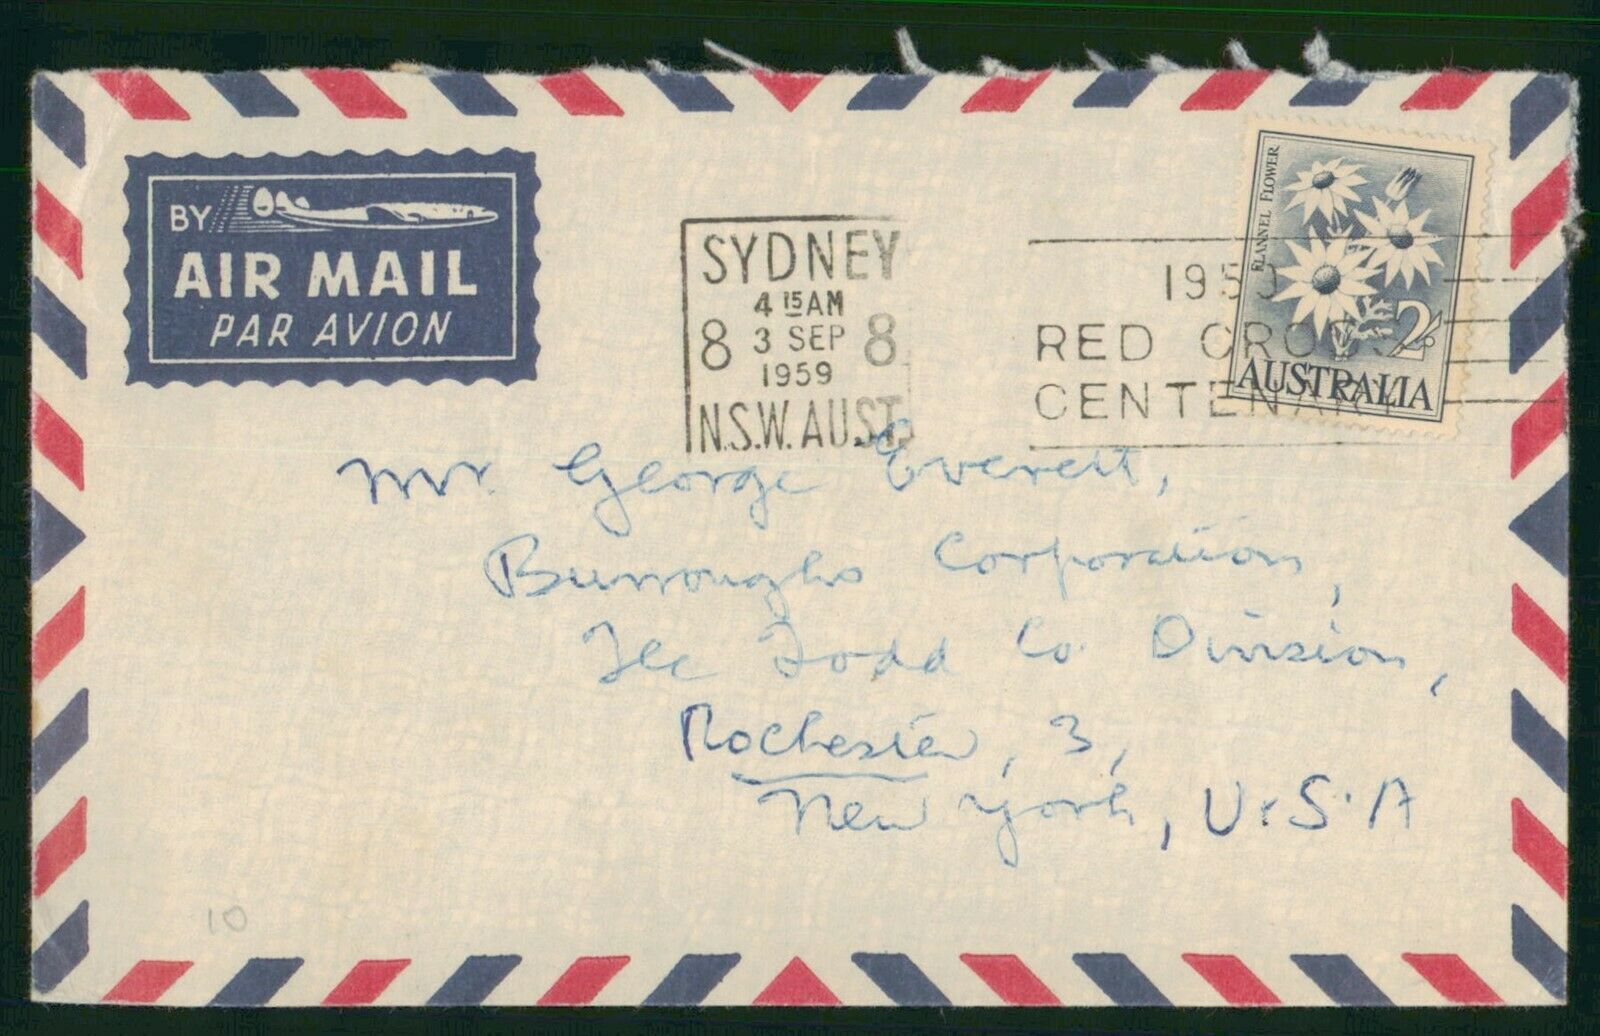 BY
AIR MAIL
PAR AVION
SYDNEY
4 15 AM
8 3 SEP 8
1959
N.S.W. AUST.
1959
RED CROSS
CENTENARY
FLANNEL FLOWER
2/-
AUSTRALIA
Mr. George Everett,
Burroughs Corporation,
The Todd Co. Division,
Rochester, 3,
New York, U.S.A
10